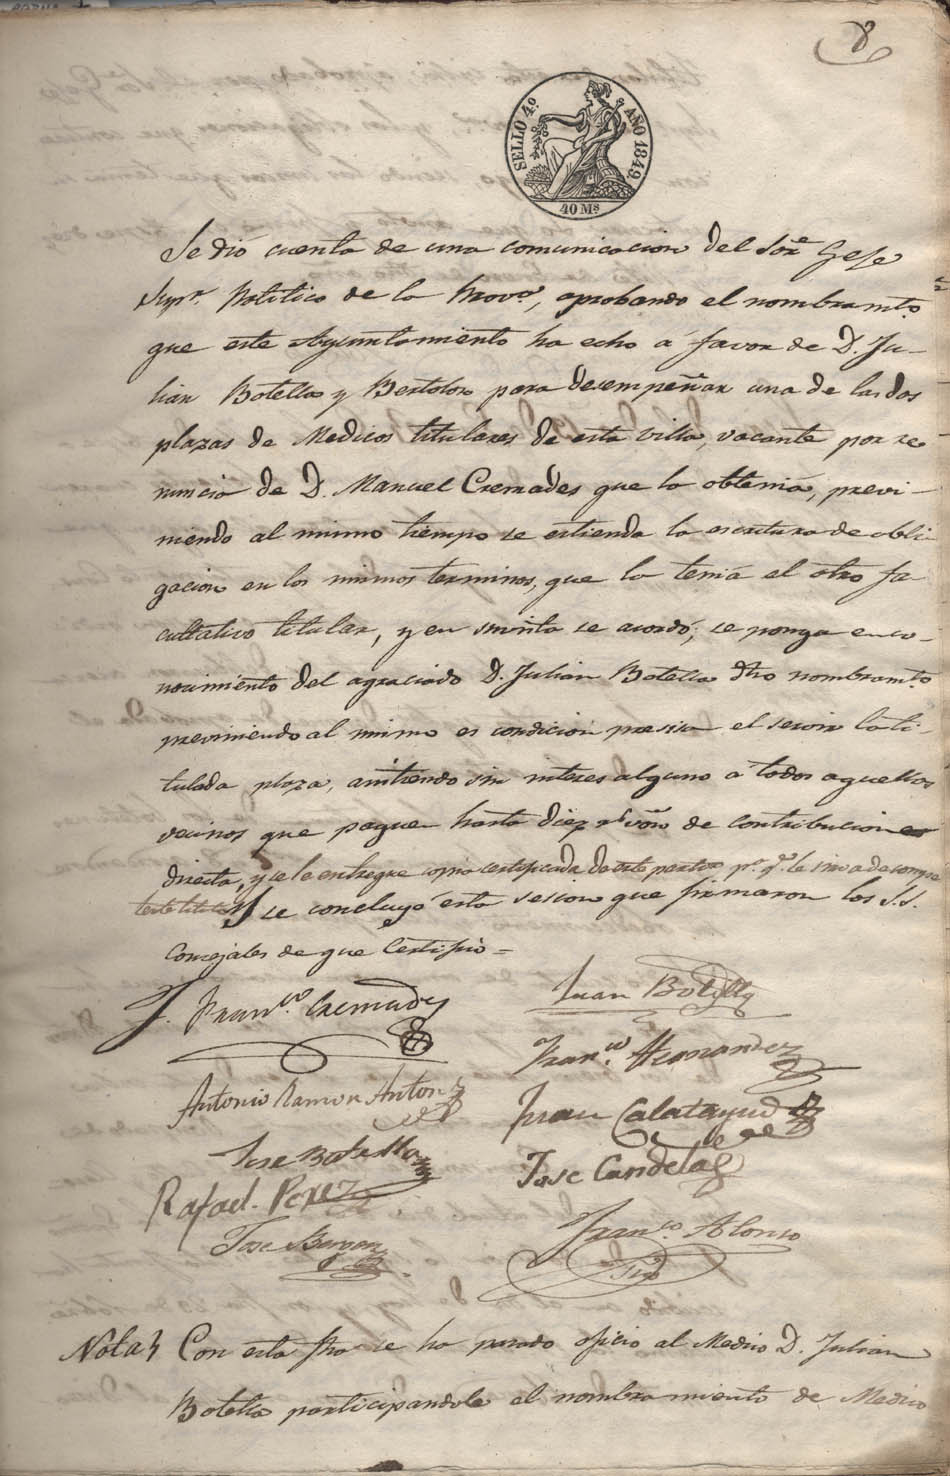 8
SELLO 4º AÑO 1849.
40 Ms
Se dió cuenta de una comunicacion del Sor. Gefe
Supr. Politico de la Prova., aprobando el nombramto.
que este Ayuntamiento ha echo á favor de D. Ju-
lian Botella y Bertolor para desempeñar una de las dos
plazas de Medicos titulares de esta villa, vacante por re-
nuncia de D. Manuel Cremades que la obtenia, previ-
niendo al mismo tiempo se estienda la escritura de obli-
gacion en los mismos terminos, que la tenia el otro fa-
cultativo titular, y en su vista se acordó; se ponga en co-
nocimiento del agraciado D. Julian Botella dho nombramto.
previniendo al mismo es condicion presisa el servir la ti-
tulada plaza, asistiendo sin interes alguno a todos aquellos
vecinos que paguen hasta diez rs. von de contribucion
directa, y se le entregue copia certificada de este particr. pa. qe. le sirva de compe
tente titulo y se concluyó esta sesion que firmaron los S.S.
Concejales de que Certifico =
J. Franco. Cremades
Juan Botella
Franco. Hernandez
Antonio Ramon Anton
Juan Calatayud
Jose Botella
Jose Candela
Rafael Perez
Jose Bergen
Franco. Alonso
Srio
Nota Con esta fha se ha pasado oficio al Medico D. Julian
Botella participandole el nombramiento de Medico